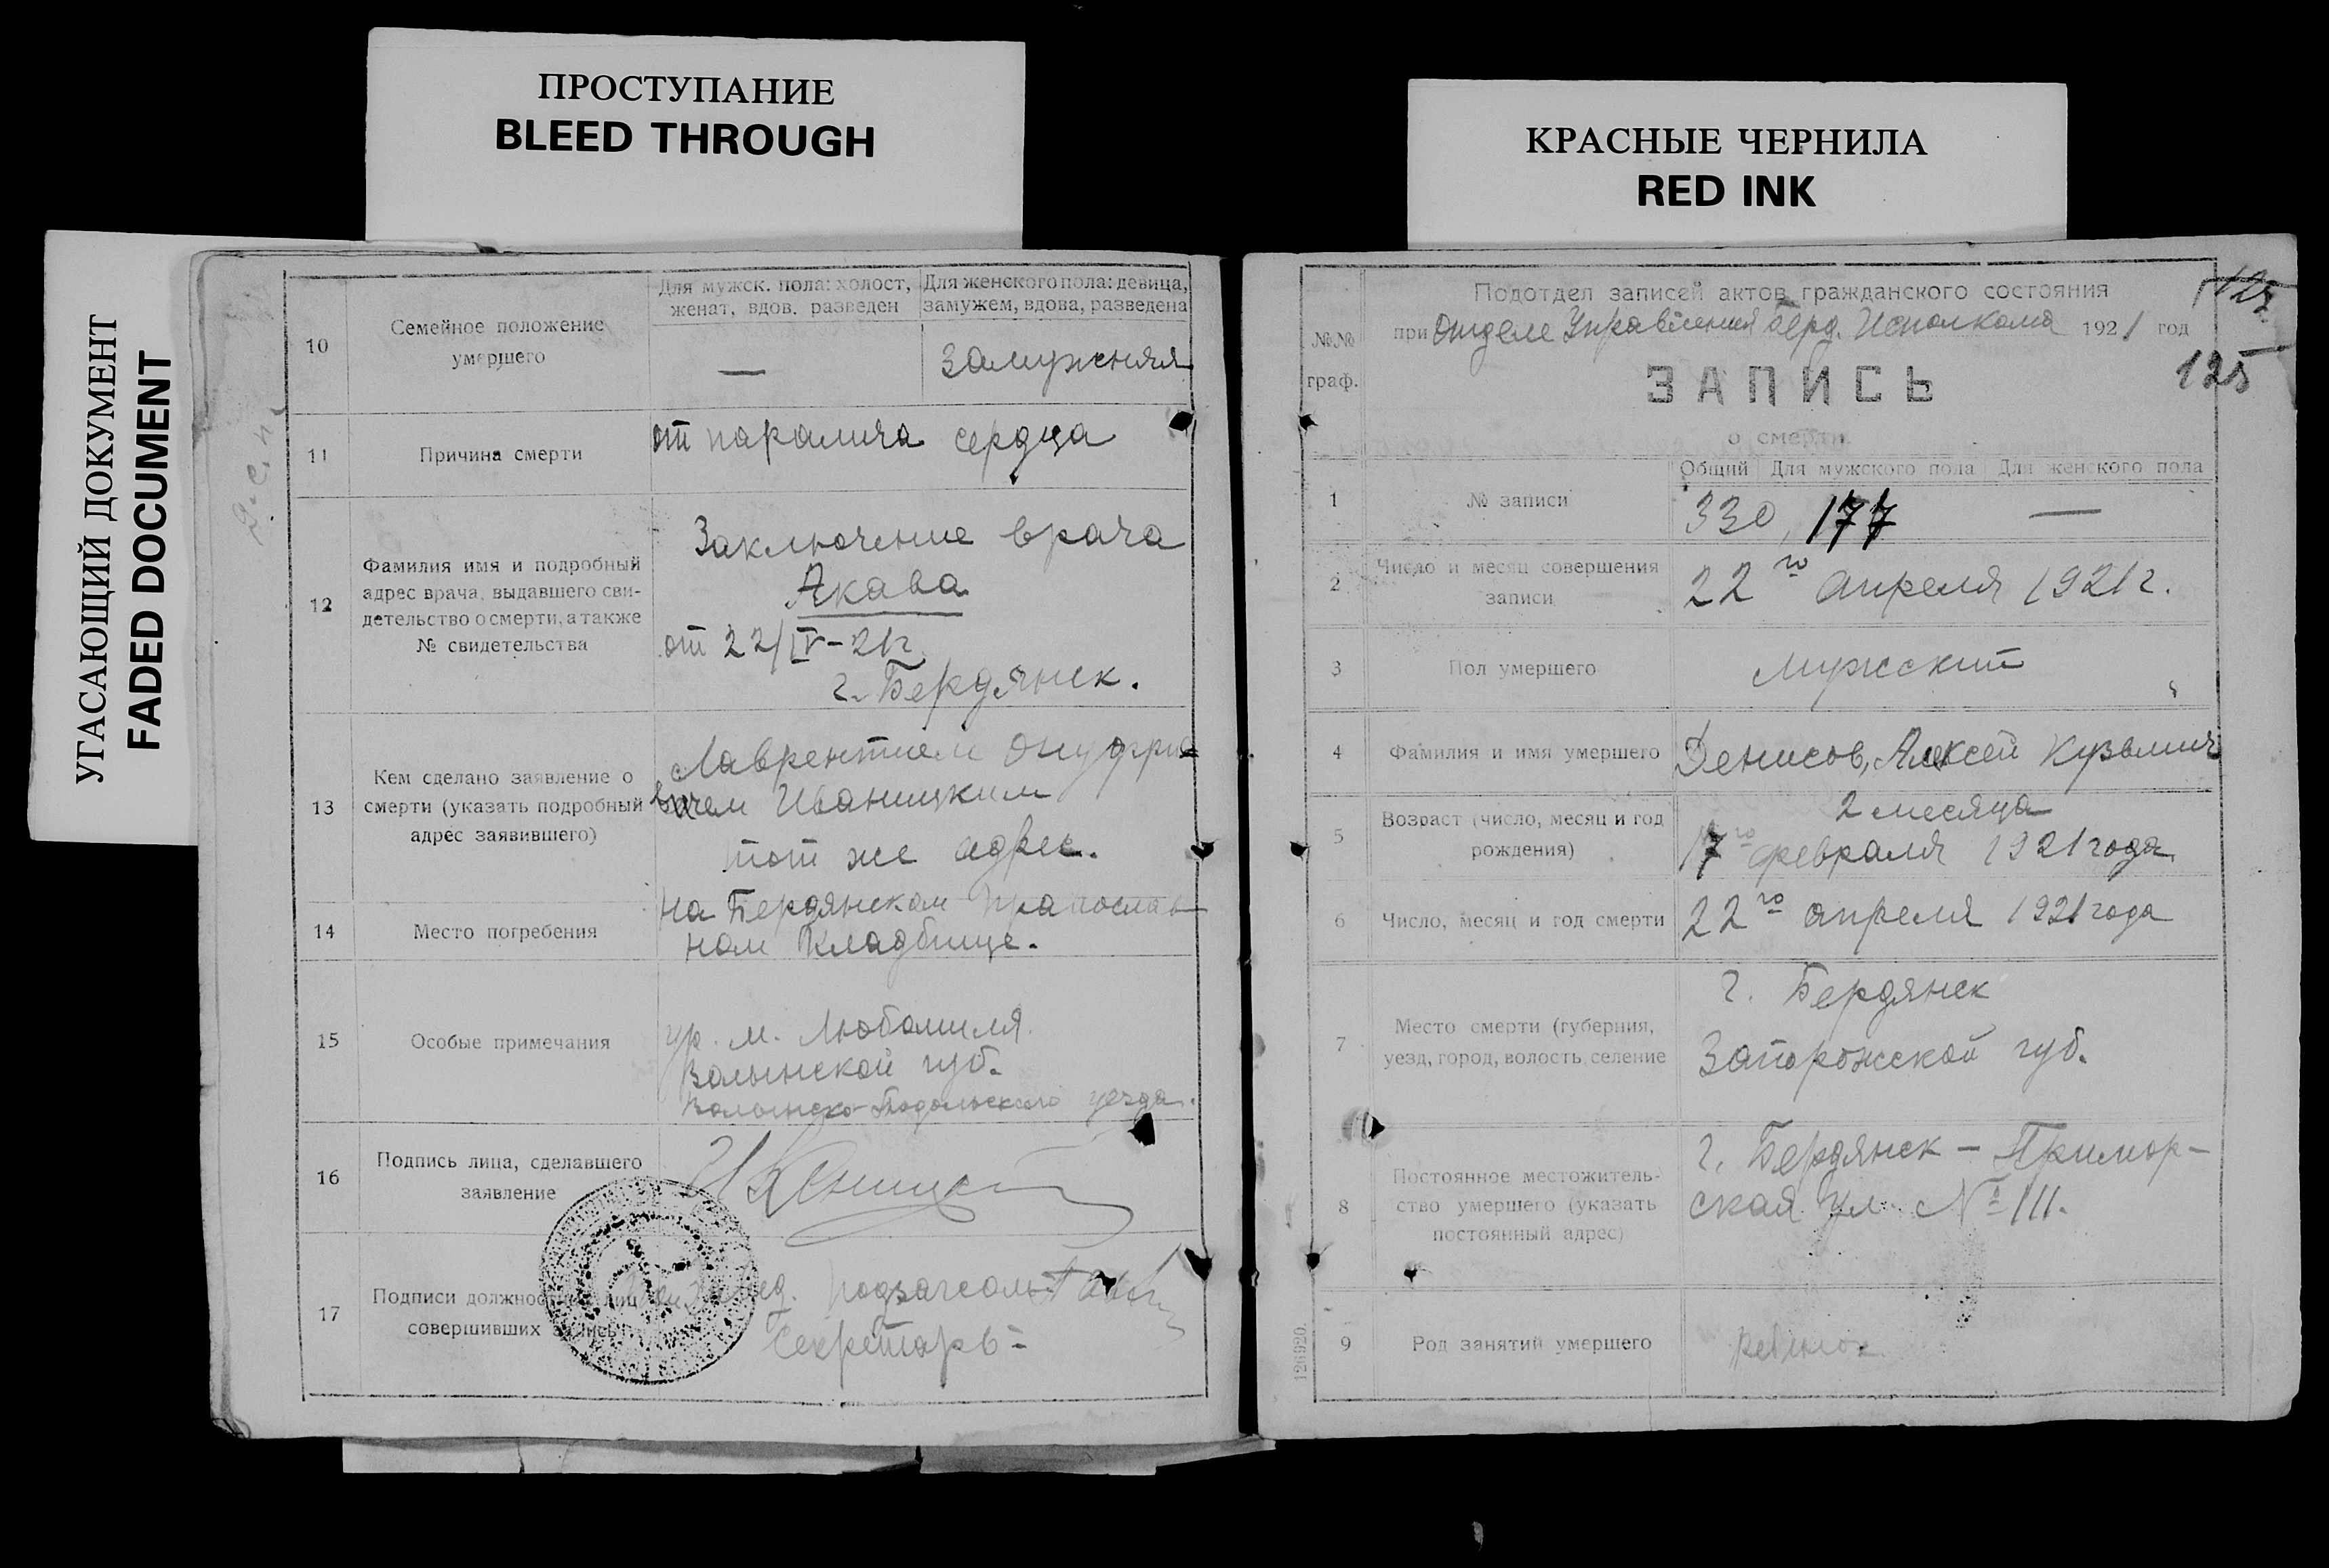 ПРОСТУПАНИЕ
BLEED THROUGH
КРАСНЫЕ ЧЕРНИЛА
RED INK
УГАСАЮЩИЙ ДОКУМЕНТ
FADED DOCUMENT
10
Семейное положение
умершего
Для мужск. пола: холост,
женат, вдов. разведен
Для женского пола: девица,
замужем, вдова, разведена
—
Замужняя
11
Причина смерти
от паралича сердца
12
Фамилия имя и подробный
адрес врача, выдавшего сви-
детельство о смерти, а также
№ свидетельства
Заключение врача
Акава
от 22/IV-21г.
г. Бердянск.
13
Кем сделано заявление о
смерти (указать подробный
адрес заявившего)
Лаврентием Онуфрие
вичем Иваницким
тот же адрес.
14
Место погребения
на Бердянском православ
ном кладбище.
15
Особые примечания
ур. м. Любомиля
Волынской губ.
Волынско-Подольского уезда.
16
Подпись лица, сделавшего
заявление
17
Подписи должностных лиц
совершивших запись
Секретарь -
№№
граф.
Подотдел записей актов гражданского состояния
при Отделе Управления Берд. Исполкома 1921 год
125
ЗАПИСЬ
о смерти.
1
№ записи
Общий
Для мужского пола
Для женского пола
330
177
—
2
Число и месяц совершения
записи
22го апреля 1921г.
3
Пол умершего
мужской
4
Фамилия и имя умершего
Денисов, Алексей Кузьмич
5
Возраст (число, месяц и год
рождения)
2 месяца
17го февраля 1921 года
6
Число, месяц и год смерти
22го апреля 1921 года
7
Место смерти (губерния,
уезд, город, волость, селение
г. Бердянск
Запорожской губ.
8
Постоянное местожитель-
ство умершего (указать
постоянный адрес)
г. Бердянск - Примор-
ская ул. № 111.
9
Род занятий умершего
ребенок
126920.